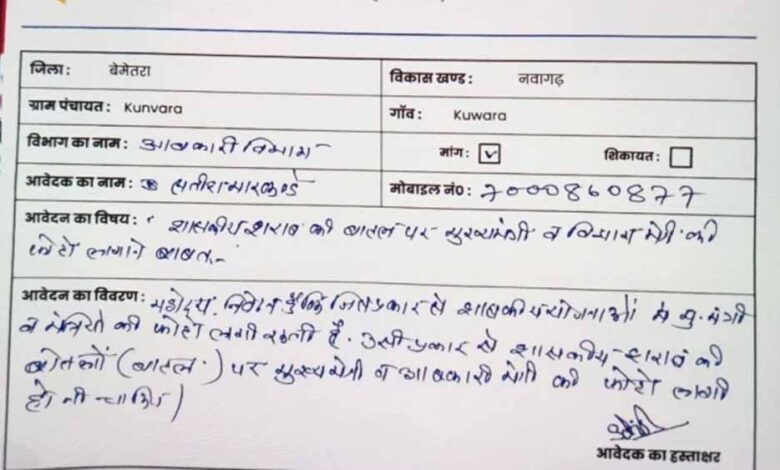 जिला: बेमेतरा
विकास खण्ड: नवागढ़
ग्राम पंचायत: Kunvara
गाँव: Kuwara
विभाग का नाम: आबकारी विभाग
मांग: ☑ शिकायत: ☐
आवेदक का नाम:
मोबाइल नं0: 7000860877
आवेदन का विषय: शासकीय शराब की बातल पर मुख्यमंत्री व विभाग मंत्री की
फोटो लगाने बाबत.-
आवेदन का विवरण: महोदय, निवेदन है कि जिस प्रकार से शासकीय योजनाओं में मु. मंत्री
व मंत्रियों की फोटो लगी रहती है. उसी प्रकार से शासकीय शराब की
बोतलों (बातल.) पर मुख्यमंत्री व आबकारी मंत्री की फोटो लगनी
होनी चाहिए।
आवेदक का हस्ताक्षर